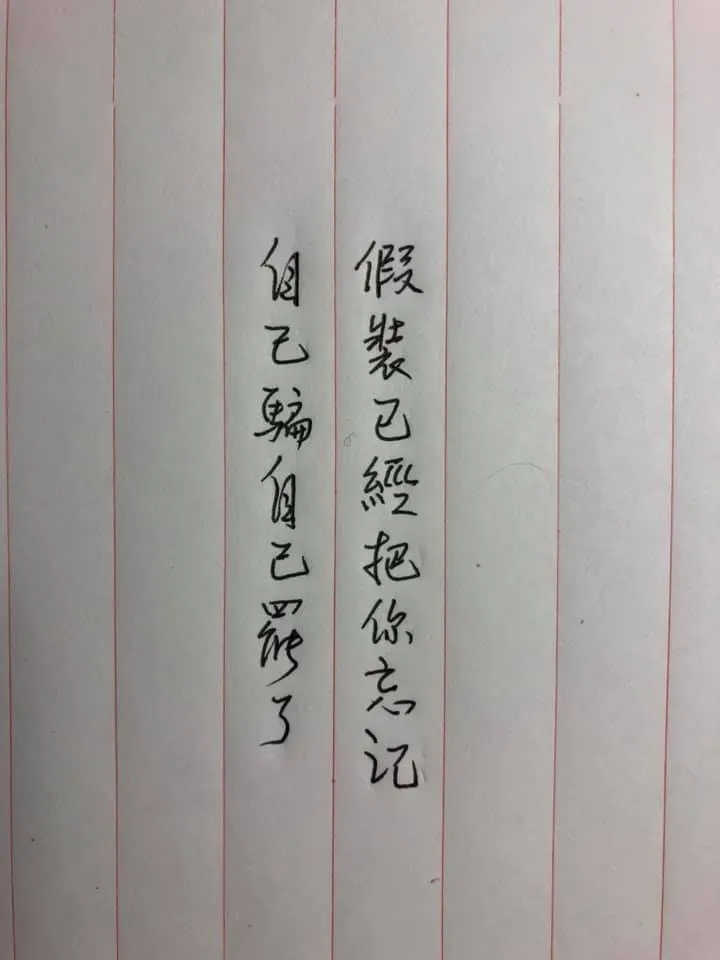 假裝已經把你忘记
自己騙自己罷了